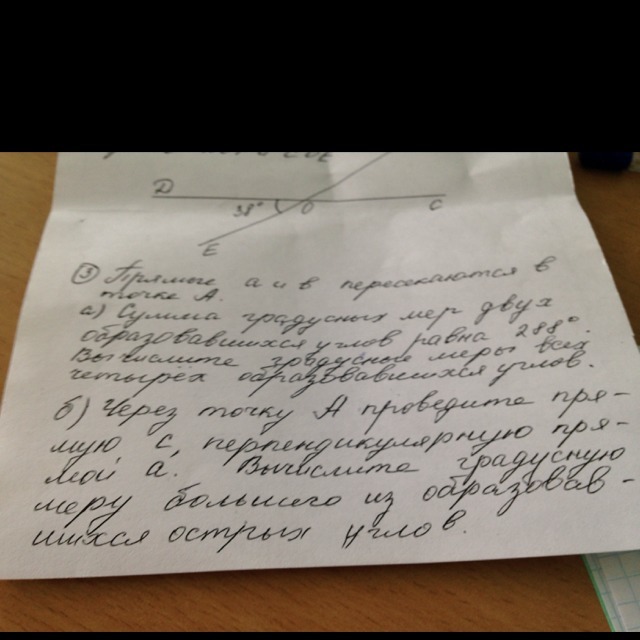 D
38°
O
C
E
③ Прямые а и в пересекаются в
точке А.
а) Сумма градусных мер двух
образовавшихся углов равна 288°.
Вычислите градусные меры всех
четырёх образовавшихся углов.
б) Через точку А проведите пря-
мую с, перпендикулярную пря-
мой а. Вычислите градусную
меру большего из образовав-
шихся острых углов.